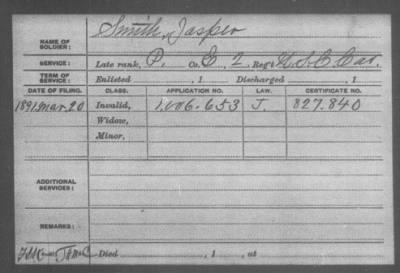 NAME OF SOLDIER: Smith, Jasper
SERVICE: Late rank, P. Co. E, 2, Reg't U.S.C. Cav.
TERM OF SERVICE: Enlisted , 1 Discharged , 1
DATE OF FILING. CLASS. APPLICATION NO. LAW. CERTIFICATE NO.
1891 Mar. 20 Invalid, 1.006.653 J. 827.840
Widow,
Minor,
ADDITIONAL SERVICES:
REMARKS:
Died , 1 , at